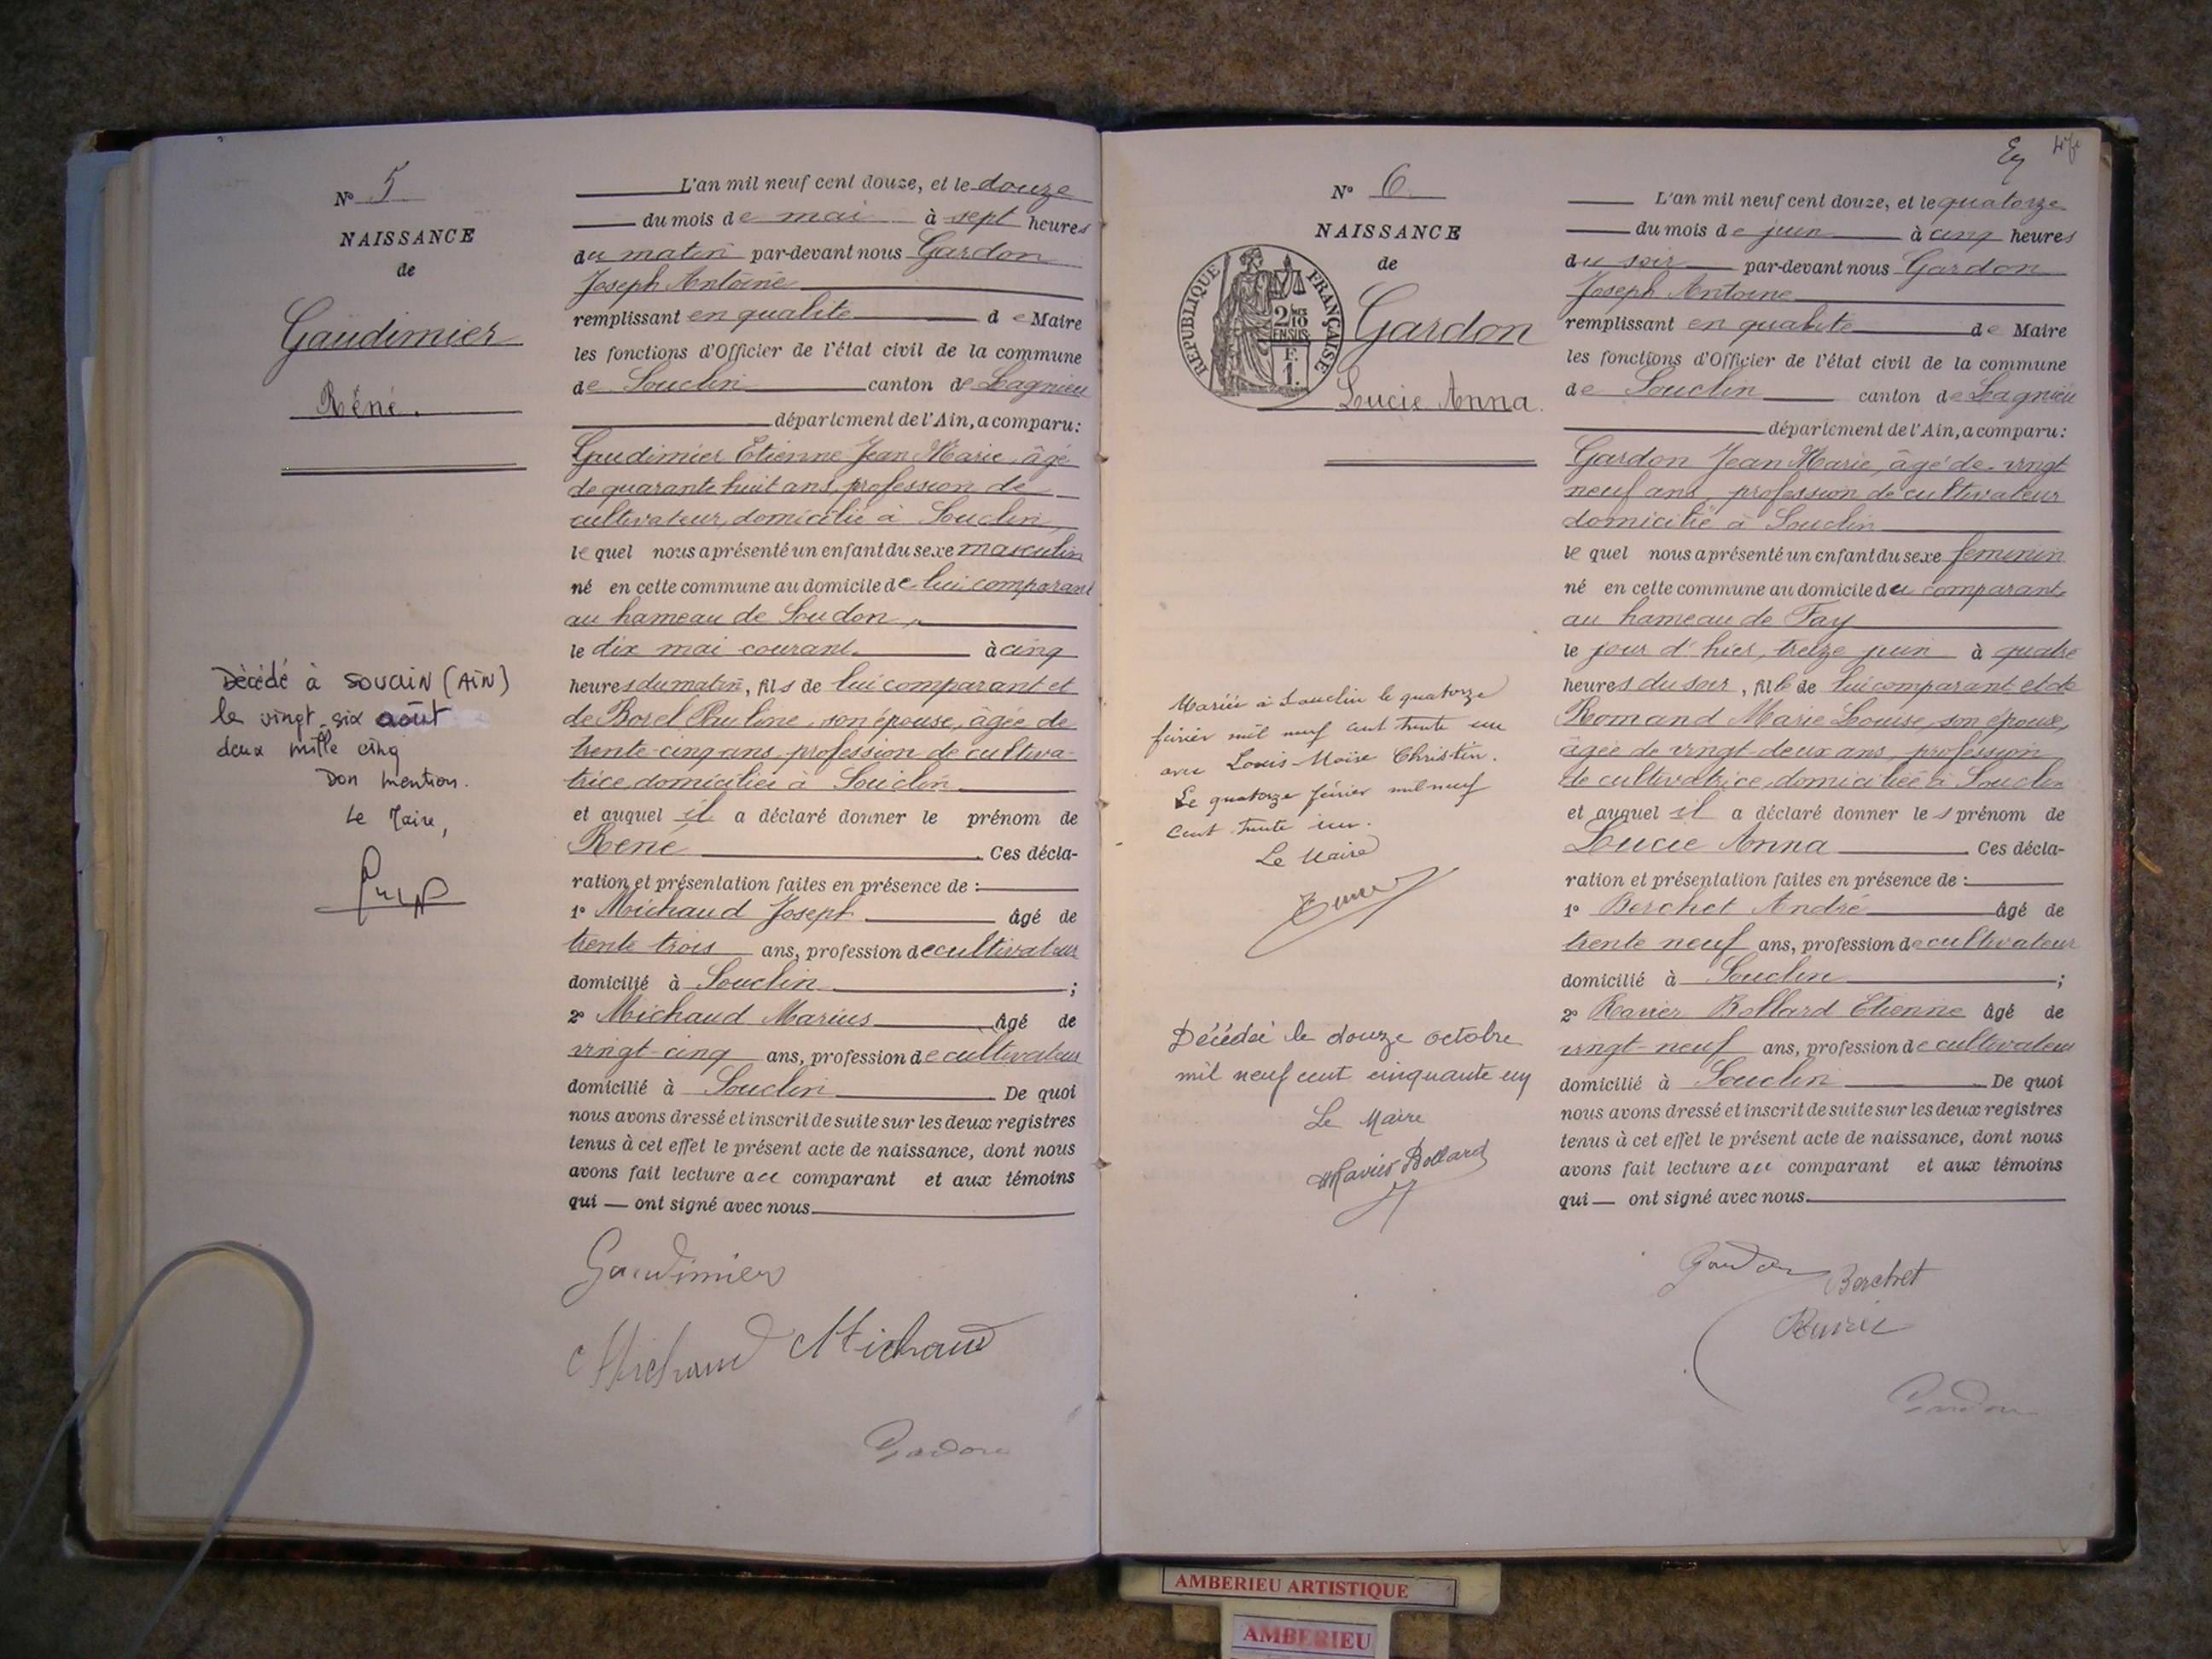 N° 5
NAISSANCE
de
Gaudimier
Réné.
Décédé à SOUCLIN (AIN)
le vingt-six août
deux mille cinq
Don mention.
Le Maire,
L'an mil neuf cent douze, et le douze
du mois de mai à sept heures
du matin par-devant nous Gardon
Joseph Antoine
remplissant en qualité de Maire
les fonctions d'Officier de l'état civil de la commune
de Souclin canton de Lagnieu
département de l'Ain, a comparu:
Gaudimier Etienne Jean Marie, âgé
de quarante huit ans, profession de
cultivateur, domicilié à Souclin,
lequel nous a présenté un enfant du sexe masculin
né en cette commune au domicile de lui comparant
au hameau de Soudon,
le dix mai courant à cinq
heures du matin, fils de lui comparant et
de Borel Pauline, son épouse, âgée de
trente-cinq ans, profession de cultiva-
trice, domiciliée à Souclin
et auquel il a déclaré donner le prénom de
René Ces décla-
ration et présentation faites en présence de :
1° Michaud Joseph âgé de
trente trois ans, profession de cultivateur
domicilié à Souclin ;
2° Michaud Marius âgé de
vingt-cinq ans, profession de cultivateur
domicilié à Souclin De quoi
nous avons dressé et inscrit de suite sur les deux registres
tenus à cet effet le présent acte de naissance, dont nous
avons fait lecture au comparant et aux témoins
qui — ont signé avec nous.
Gaudimier
Michaud Michaud
Gardon
N° 6
NAISSANCE
de
REPUBLIQUE FRANÇAISE
2/10
EN SUS
F.
1.
Gardon
Lucie Anna.
Mariée à Souclin le quatorze
février mil neuf cent trente un
avec Louis Moïse Christin.
Le quatorze février mil neuf
cent trente un.
Le Maire
Décédée le douze octobre
mil neuf cent cinquante un
Le Maire
Ravier-Bollard
L'an mil neuf cent douze, et le quatorze
du mois de juin à cinq heures
du soir par-devant nous Gardon
Joseph Antoine
remplissant en qualité de Maire
les fonctions d'Officier de l'état civil de la commune
de Souclin canton de Lagnieu
département de l'Ain, a comparu:
Gardon Jean Marie, âgé de vingt
neuf ans, profession de cultivateur
domicilié à Souclin
lequel nous a présenté un enfant du sexe feminin
né en cette commune au domicile du comparant
au hameau de Fay
le jour d'hier, treize juin à quatre
heures du soir, fille de lui comparant et de
Romand Marie Louise, son épouse,
âgée de vingt-deux ans, profession
de cultivatrice, domiciliée à Souclin
et auquel il a déclaré donner les prénom de
Lucie Anna Ces décla-
ration et présentation faites en présence de :
1° Berchet André âgé de
trente neuf ans, profession de cultivateur
domicilié à Souclin ;
2° Ravier Bollard Etienne âgé de
vingt-neuf ans, profession de cultivateur
domicilié à Souclin De quoi
nous avons dressé et inscrit de suite sur les deux registres
tenus à cet effet le présent acte de naissance, dont nous
avons fait lecture au comparant et aux témoins
qui — ont signé avec nous.
Gardon Berchet
Ravier
Gardon
AMBERIEU ARTISTIQUE
AMBERIEU